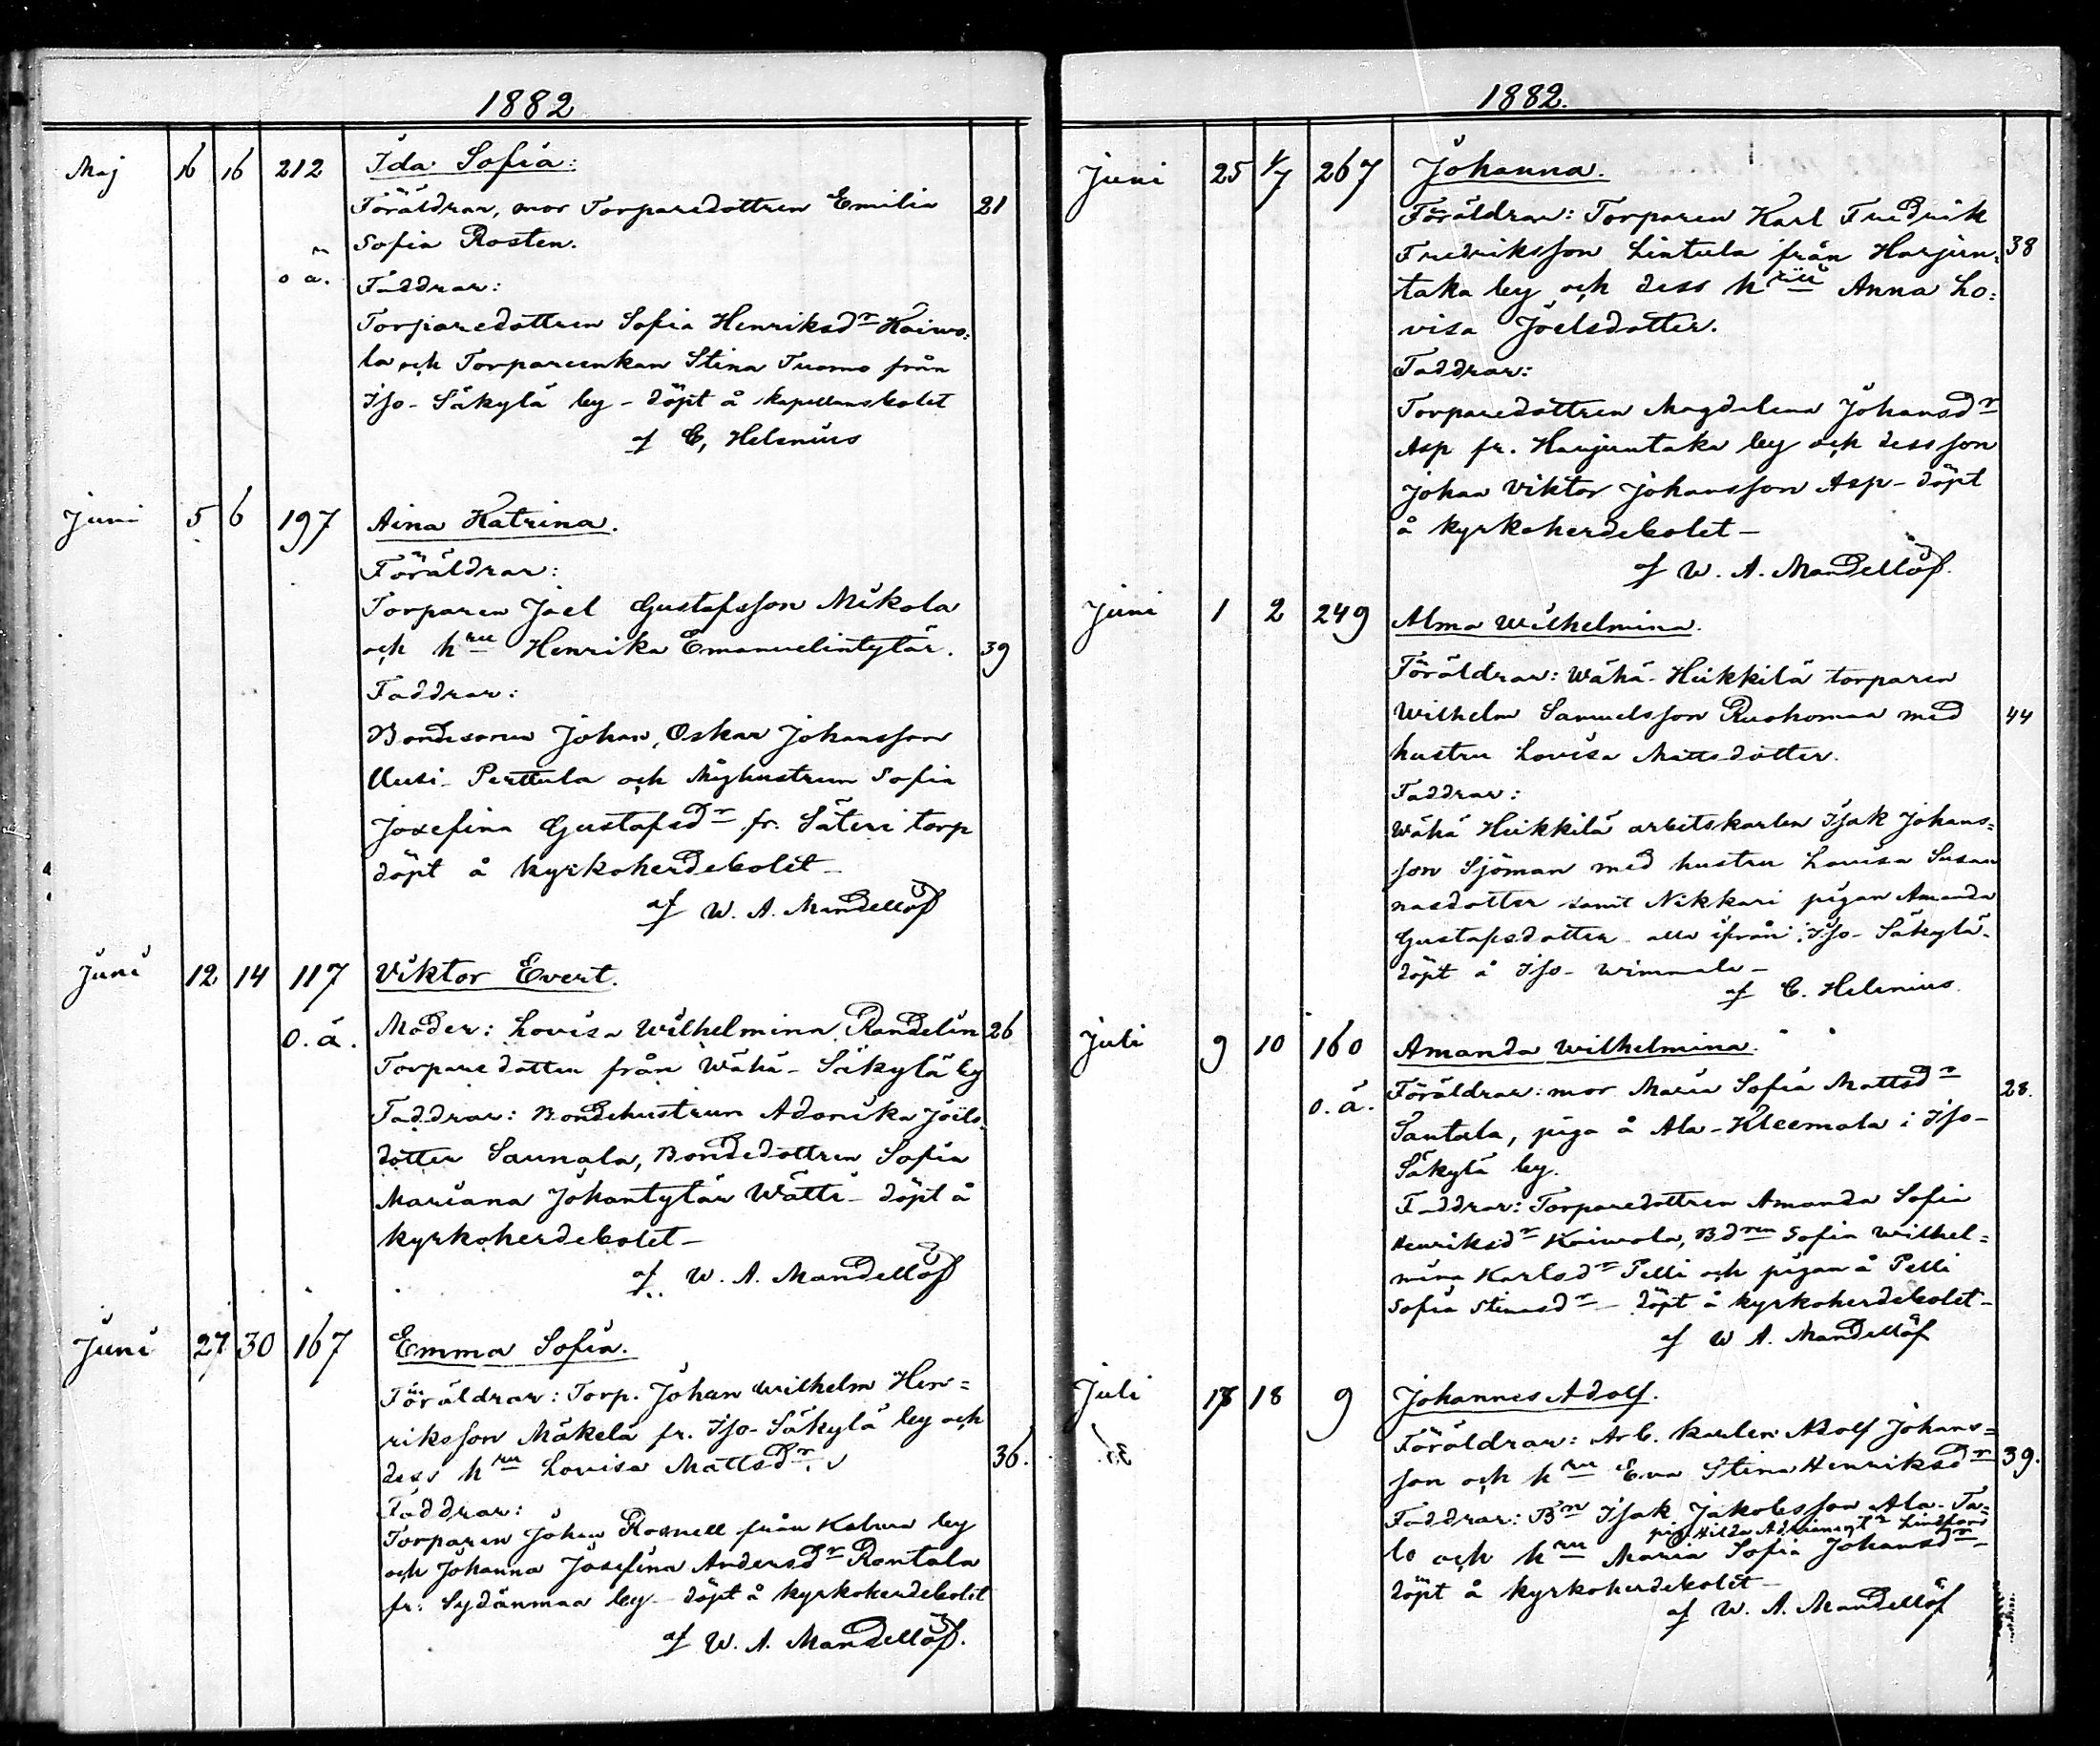 1882
Maj 16 16 212 Ida Sofia:
Föräldrar, mor Torparedottren Emilia 21
Sofia Rosten.
o ä. Faddrar:
Torparedottren Sofia Henriksdr Kaiwo=
la och Torpareenkan Stina Tuomo från
Iso-Säkylä by - döpt å kapellansbolet
af C, Helenius
Juni 5 6 197 Aina Katrina.
Föräldrar:
Torparen Joel Gustafsson Mikola
och hru Henrika Emanuelintytär. 39
Faddrar:
Bondesonen Johan, Oskar Johansson
Uusi-Perttula och Måghustrun Sofia
Josefina Gustafsdr fr. Säteri torp
döpt å kyrkoherdebolet -
af W. A. Mandellöf
Juni 12 14 117 Viktor Evert.
o. ä. Moder: Lovisa Wilhelmina Randelin 26
Torparedotter från Wähä-Säkylä by
Faddrar: Bondehustrun Adamika Joels
dotter Saunala, Bondedottren Sofia
Mariana Johantytär Wätti - döpt å
kyrkoherdebolet -
af W. A. Mandellöf
Juni 27 30 167 Emma Sofia.
Föräldrar: Torp. Johan Wilhelm Hen=
riksson Mäkelä fr. Iso-Säkylä by och
dess hru Lovisa Mattsdr. 36.
Faddrar:
Torparen Johan Rosnell från by
och Johanna Josefina Andersdr Rantala
fr. Sydänmaa by - döpt å kyrkoherdebolet
af W. A. Mandellöf.
1882.
Juni 25 1/7 267 Johanna.
Föräldrar: Torparen Karl Fredrik
Fredriksson Lintula från Harjun= 38
taka by och dess hru Anna Lo=
visa Joelsdotter.
Faddrar:
Torparedottren Magdalena Johansdr
Asp fr. Harjuntaka by och dess son
Johan Viktor Johansson Asp - döpt
å kyrkoherdebolet -
af W. A. Mandellöf.
Juni 1 2 249 Alma Wilhelmina.
Föräldrar: Wähä-Heikkilä torparen
Wilhelm Samuelsson Ruohomaa med 44
hustru Lovisa Mattsdotter.
Faddrar:
Wähä Heikkilä arbetskarlen Isak Johans=
son Sjöman med hustru Lovisa Susan
nasdotter samt Nikkari pigan Amanda
Gustafsdotter alla ifrån Iso-Säkylä -
döpt å Iso-Wimmala -
af C. Helenius
Juli 9 10 160 Amanda Wilhelmina.
o. ä. Föräldrar: mor Maria Sofia Mattsdr 28.
Santala, piga å Ala-Kleemola i Iso-
Säkylä by.
Faddrar: Torparedottren Amanda Sofia
Henriksdr Kaiwola, Bdren Sofia Wilhel=
mina Karlsdr Pelli och pigan å Pelli
Sofia Stinasdr - döpt å kyrkoherdebolet -
af W A. Mandellöf
Juli 18 18 9 Johannes Adolf.
Föräldrar: Arb. karlen Adolf Johans=
son och hru Eva Stina Henriksdr 39.
Faddrar: Bn Isak Jakobsson Ala-Ta=
pig. Hilda
lo och hru Maria Sofia Johansdr -
döpt å kyrkoherdebolet -
af W. A. Mandellöf